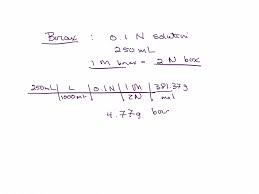 Borax : 0.1 N solution
250 mL
1 M borax = 2 N box
250mL | L | 0.1N | 1M | 381.37g
1000mL | | 2N | mol
4.77g bor